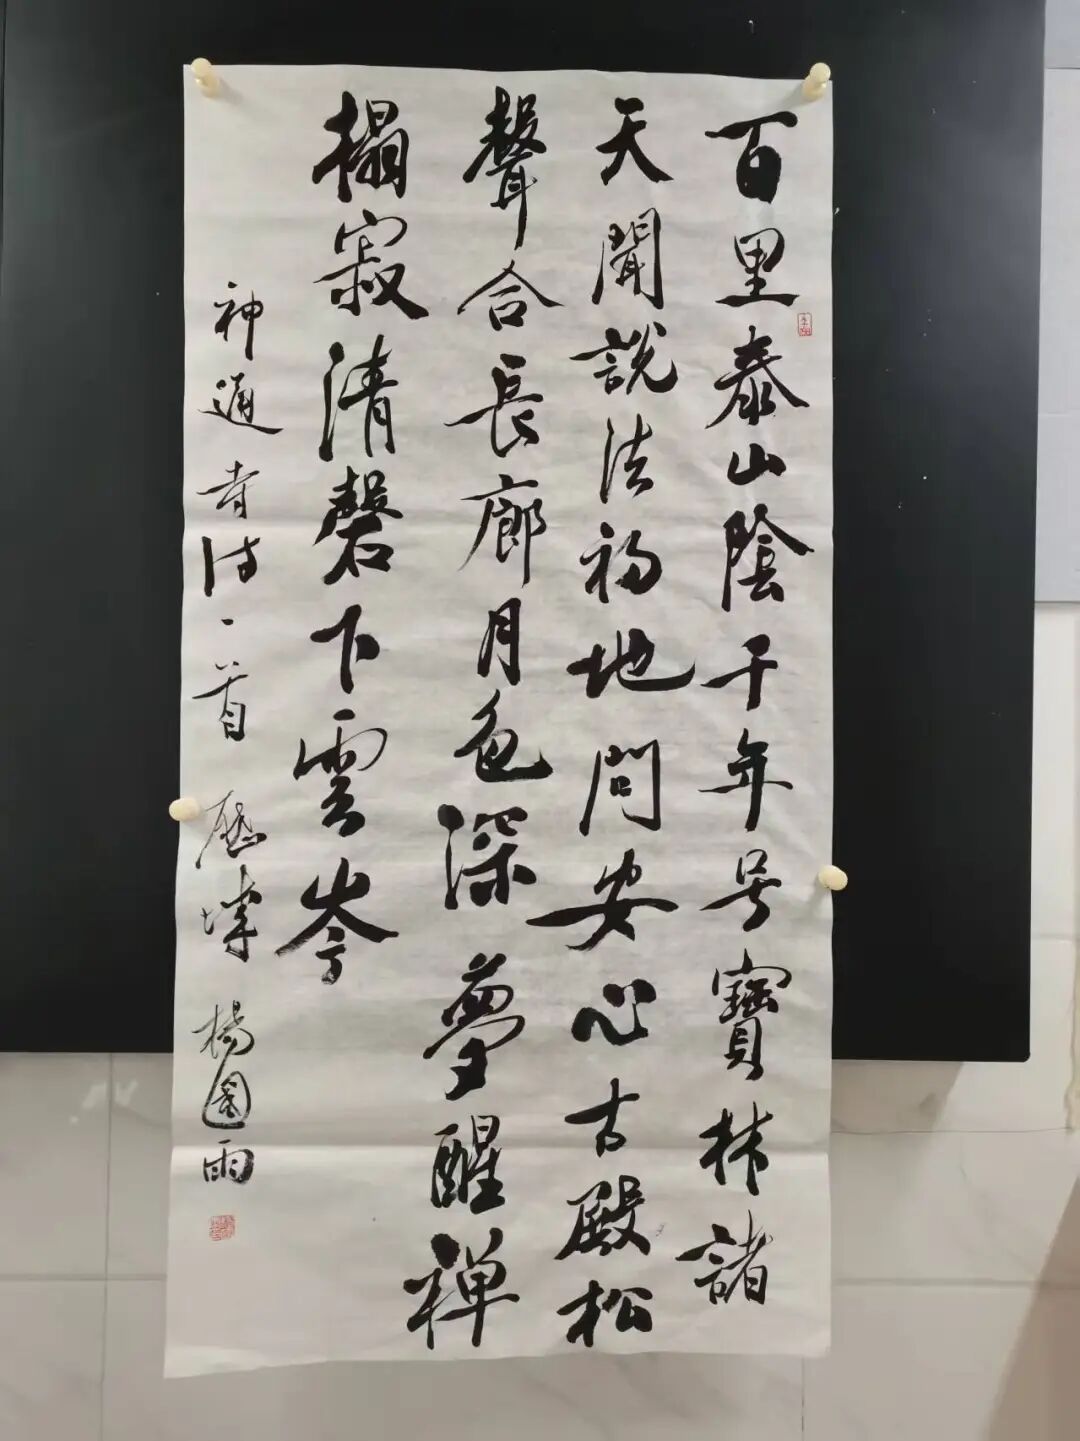 百里泰山陰千年号寶林諸
天聞說法福地問安心古殿松
聲合長廊月色深夢醒禅
榻寂清磬下雲岑
神通寺诗一首 歷城 楊圖雨